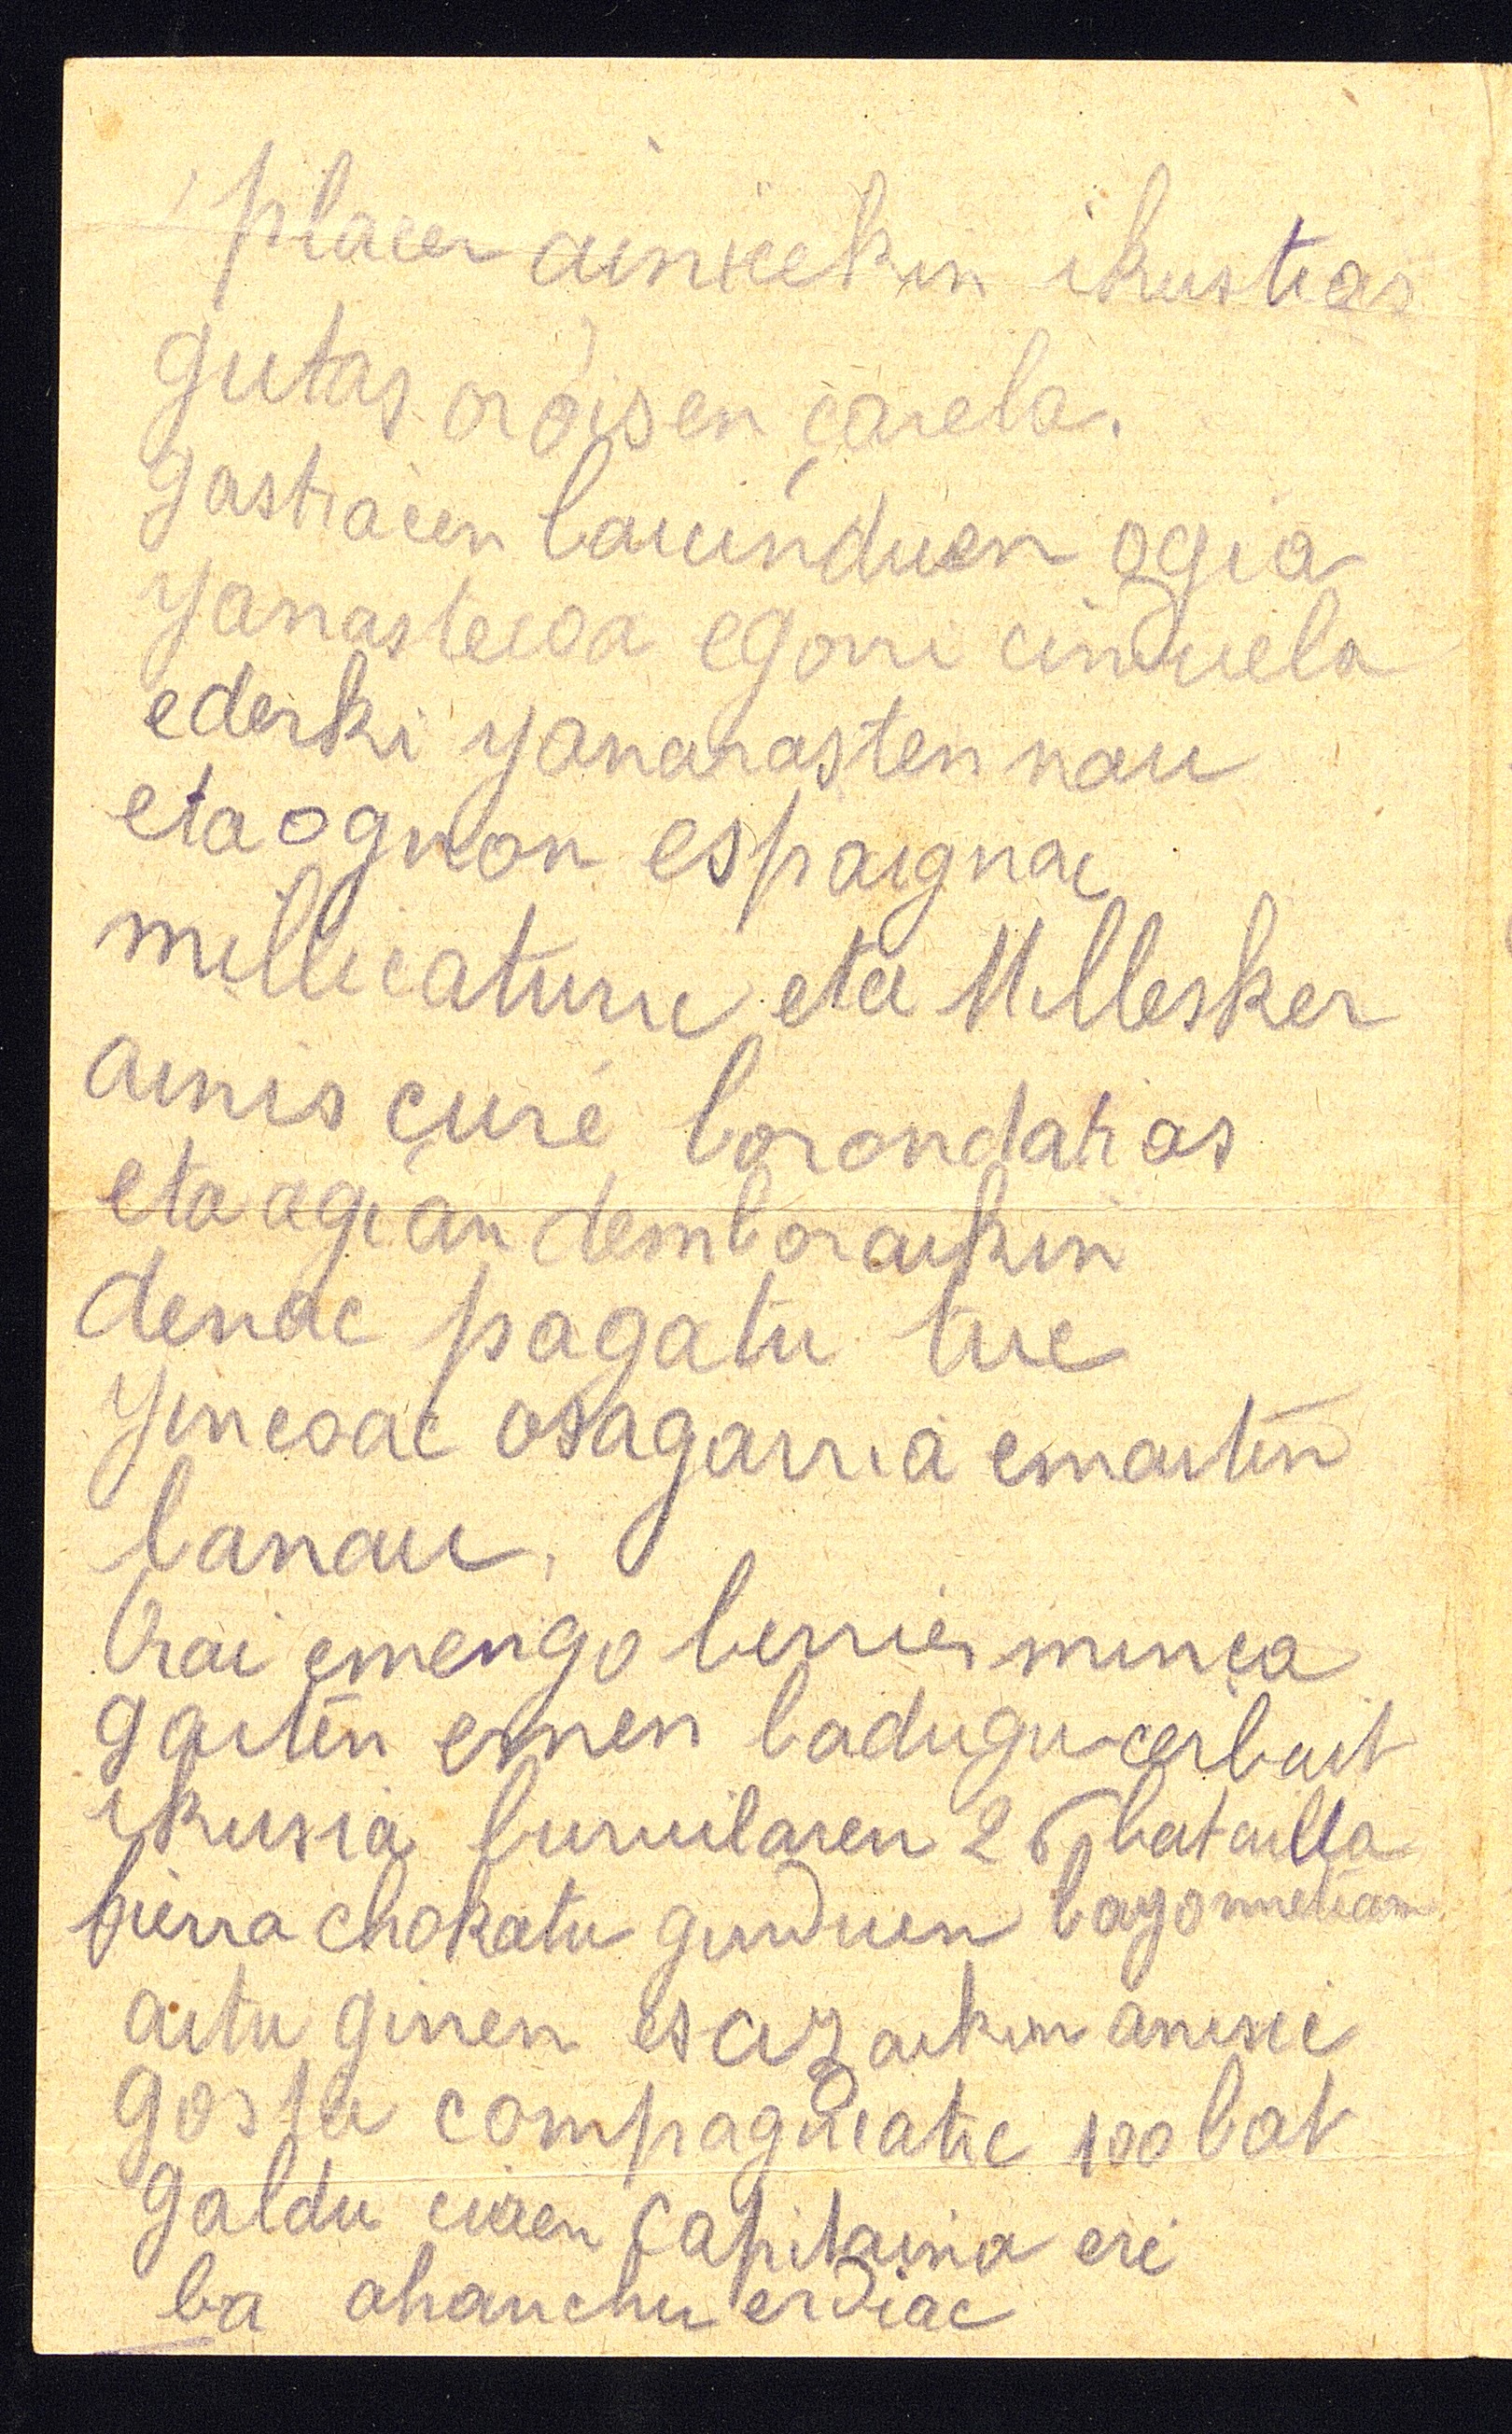 placer ainicekin ikustias
gutas oroisen çarela.
gastiacen bauinduen ogia
yanastecoa egorri cinduela
ederki yanarasten nau
eta ognon espaignac
millicaturic eta Millesker
ainis çure borondatias
eta agian demboraikin
denac pagatu tuc
yincoac osagarria emaiten
banau.
Orai emengo berries minça
gaiten emen badugu cerbait
ikusia buruilaren 26 batailla
bierra chokatu ginduen bayonnetian
aitu ginen es aizaikin anicei
gosta compagniatic 100 bat
galdu ciren capitaina ere
ba ahanchu erdiac